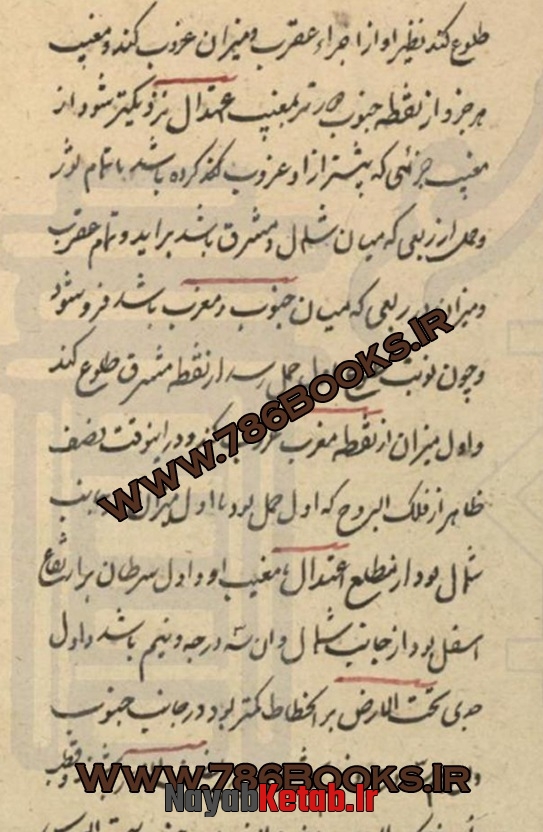 طلوع کند نظیر او از اجزاء عقرب و میزان غروب کند و مغیب
هر جزو از نقطه جنوب دورتر بمغیب اعتدال نزدیکتر شود از
مغیب جزئی که پیشتر از او غروب کرده باشد تا تمام ثور
و حمل از ربعی که میان شمال و مشرق باشد براید و تمام عقرب
و میزان در ربعی که میان جنوب و مغرب باشد فرو شود
و چون نوبت اول حمل رسد از نقطه مشرق طلوع کند
و اول میزان از نقطه مغرب غروب کند و در اینوقت نصف
ظاهر از فلک البروج که اول حمل بود تا اول میزان جانب
شمال بود از مطلع اعتدال تا مغیب او و اول سرطان بر ارتفاع
اسفل بود از جانب شمال و ان سه درجه و نیم باشد و اول
جدی تحت الارض بر انحطاط کمتر بود در جانب جنوب
www.786Books.iR
www.786Books.iR
NayabKetab.Ir